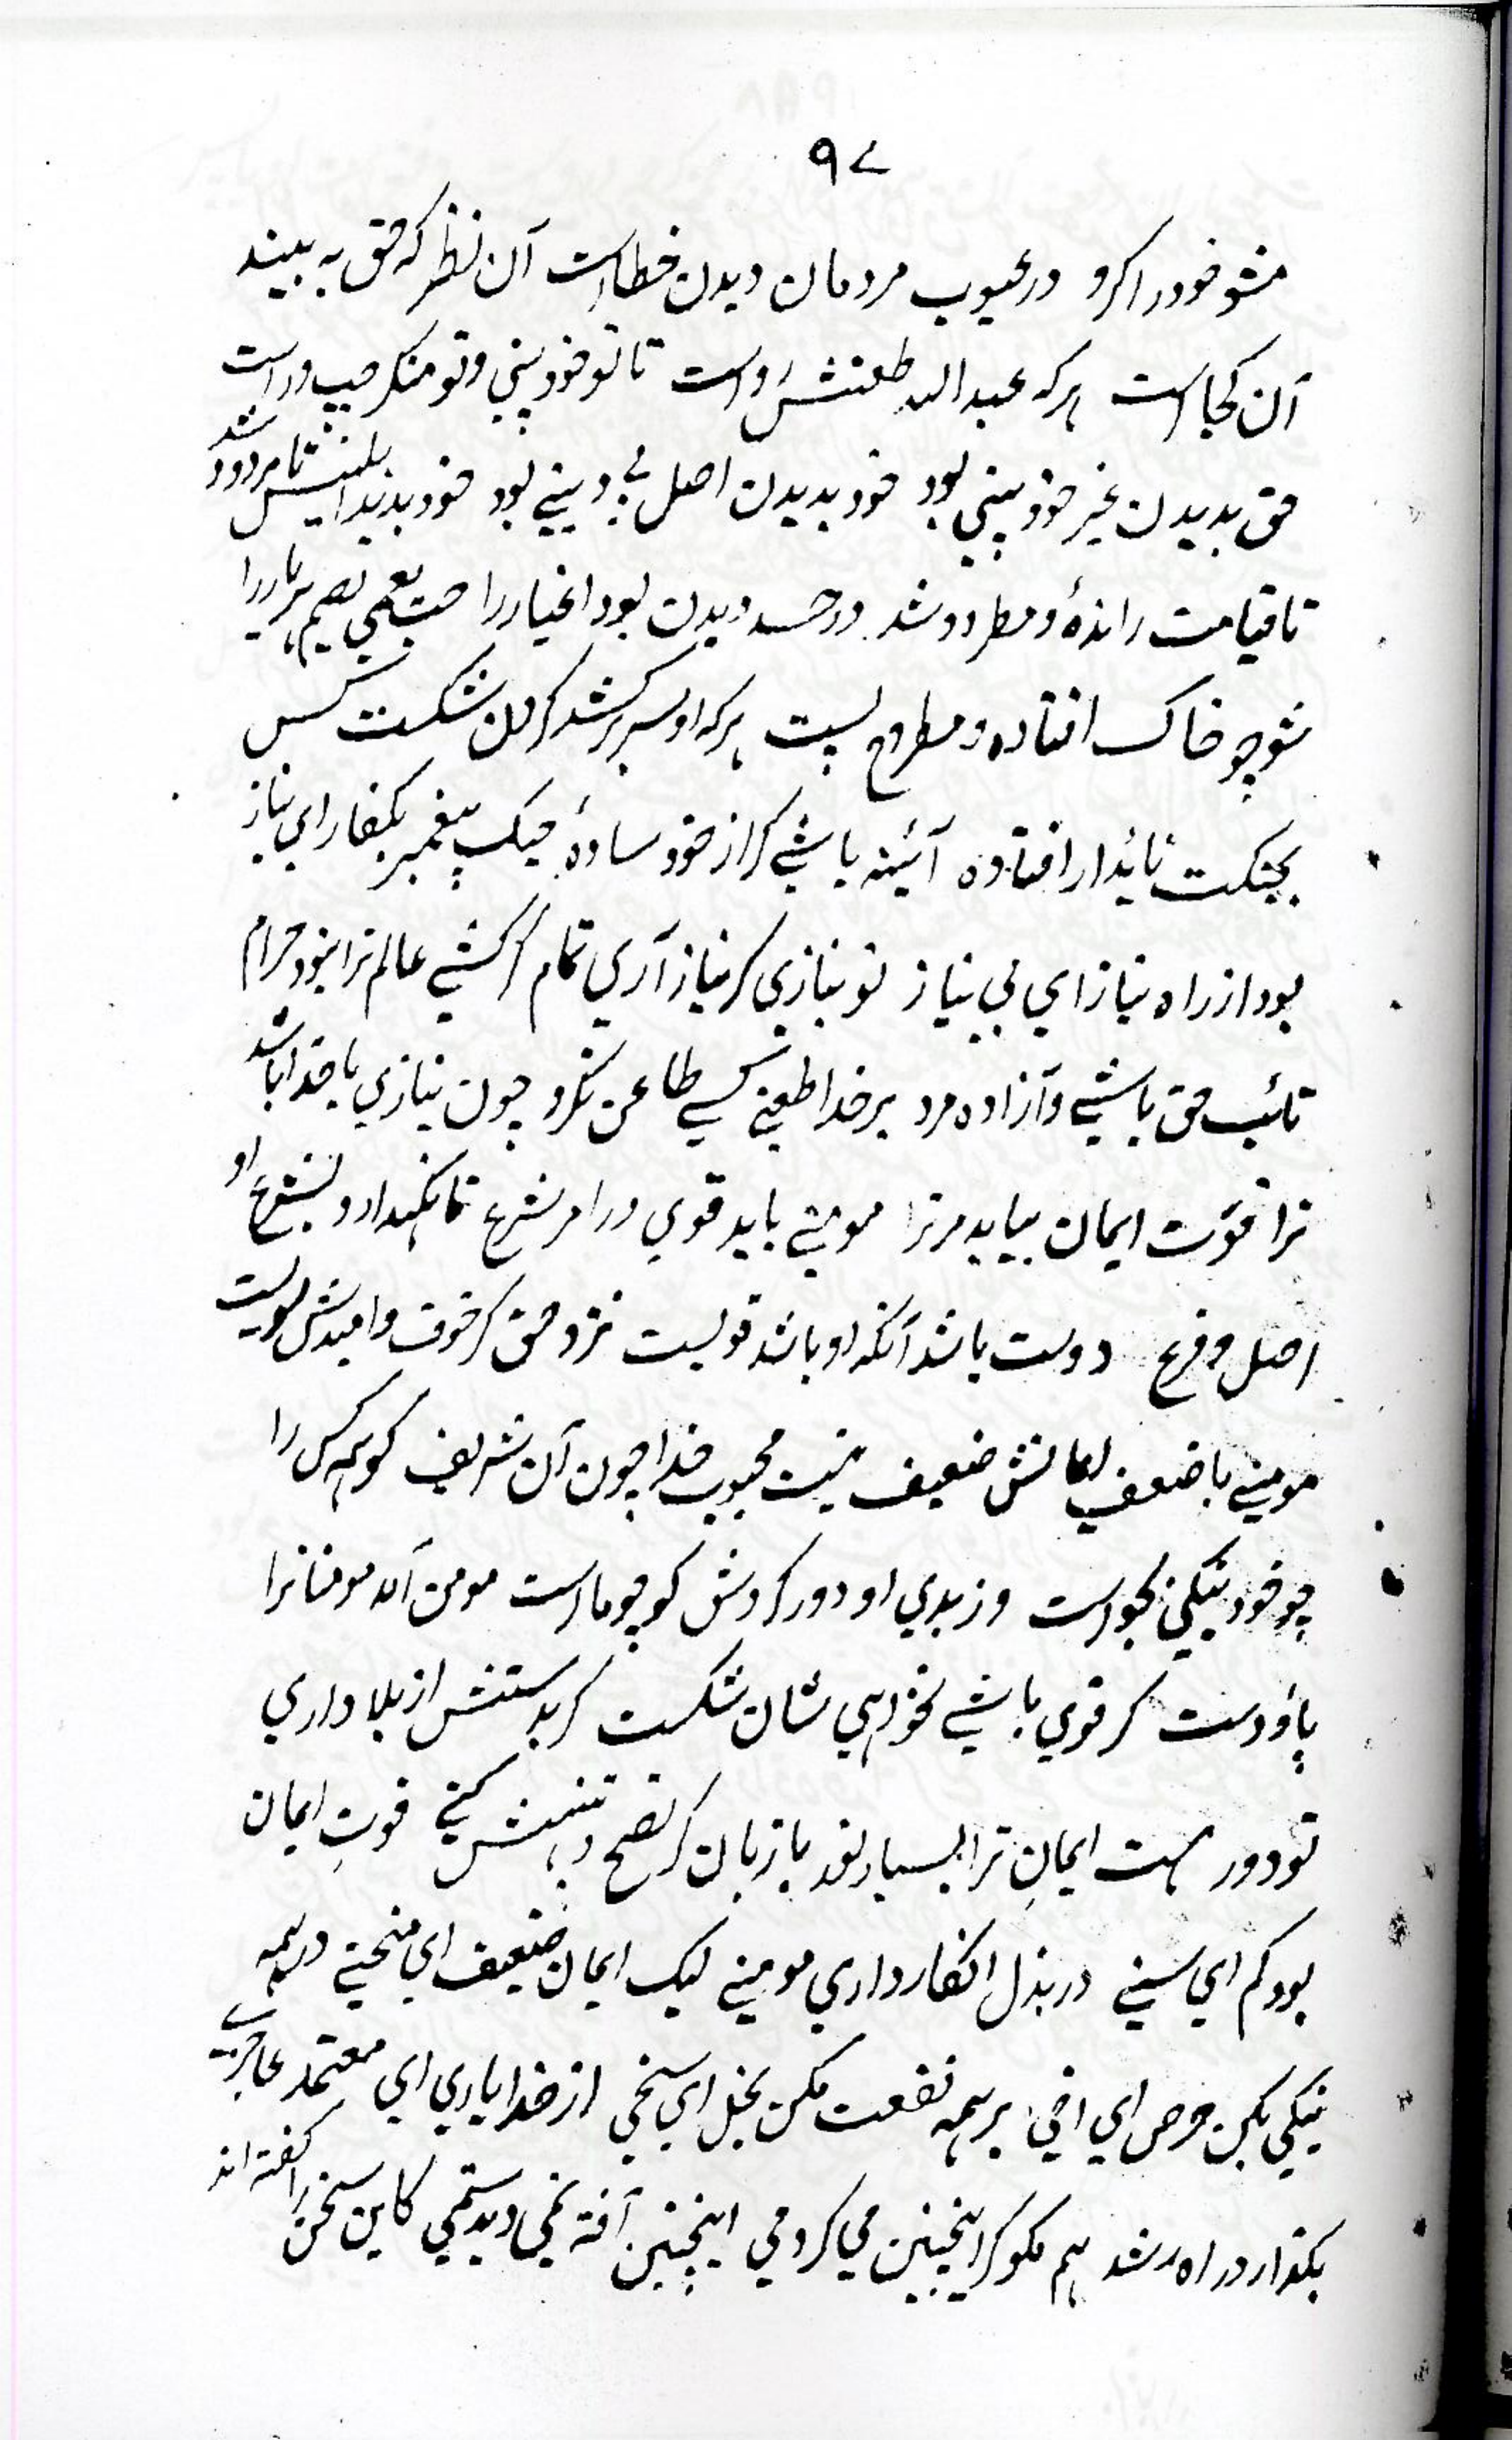 ۹۷
مشو خود را کرو در عیوب مردمان دیدن خطاست آن نظر که حق به بیند
آن کجاست هرکه عبد الله طعنش رواست تا تو خود بینی و تو منکر وراست
حق بدیدن غیر خود بینی بود خود بدیدن اصل بی دینی بود خود بدید ابلیس تا مردود شد
تا قیامت راندهٔ و مطرود شد در حسد دیدن بود اغیار را حب یعمی یصم مر یار را
شو چو خاک افتاده و مطروح پست هرکه او سر برکشد گردن شکست کس
بجنگت ناید ار افتادهٔ آئینه باشی گر از خود سادهٔ جنگ پیغمبر بکفار ای نیاز
بود از راه نیاز ای بی نیاز تو نیازی گر نیاز آری تمام گر کشی عالم ترا نبود حرام
نائب حق باشی و آزاده مرد بر خدا طعنی کسی طاعن نکرد چون نیازی با خدا باشد
ترا قوت ایمان بیاید مر ترا مومنی باید قوی در امر شرع تا نگهدارد بشرع او
اصل و فرع دوست باشد آنکه او باشد قویست نزد حق کر خوف و امیدش سویست
مومنی با ضعف ایمانش ضعیف نیست محبوب خدا چون آن شریف کو همه کس را
چو خود نیکی بخواست وز بدی او دور کردش کو چو ماست مومن آمد مومنانرا
پاؤ دست گر قوی باشی نخواهی شان شکست گر بدستش از بلا داری
تو دور هست ایمانِ ترا بسیار نور با زبان گر نصح و تنبیهش کنی قوتِ ایمان
بود کم ای سنی در بذل انکار داری مومنی لیک ایمان ضعیف ای منحنی در همه
نیکی بکن حرص ای اخی بر همه نفعت مکن بخل ای سخی از خدا یاری ای معتمد عاجزی
بگذار در راه رشد هم مگو کر اینچنین می کردمی اینچنین آفة نمی دیدستمی کاین سخن را گفته اند